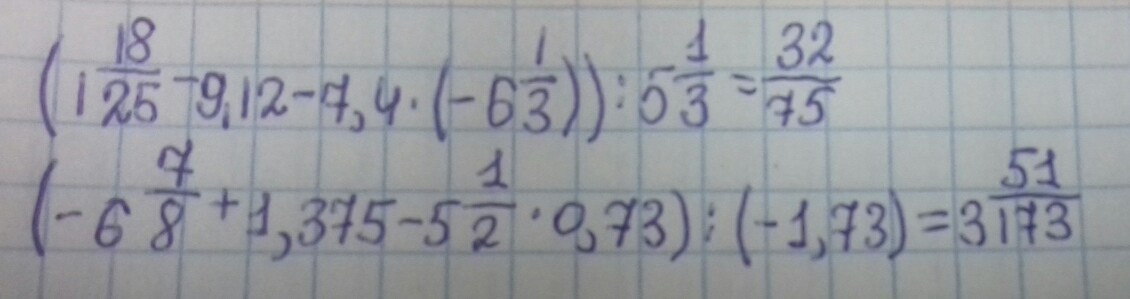 (1 18/25 - 9,12 - 7,4 · (-6 1/3)) : 5 1/3 = 32/75
(-6 7/8 + 1,375 - 5 1/2 · 0,73) : (-1,73) = 3 51/173